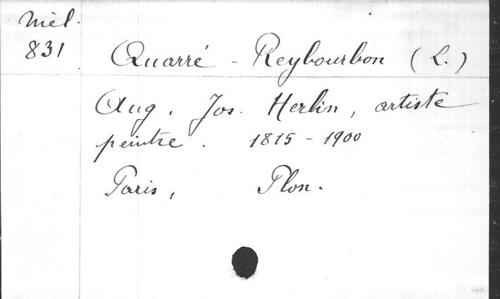 Mél.
831
Quarré - Reybourbon (L.)
Aug. Jos. Herlin, artiste
peintre. 1815 - 1900
Paris, Plon.